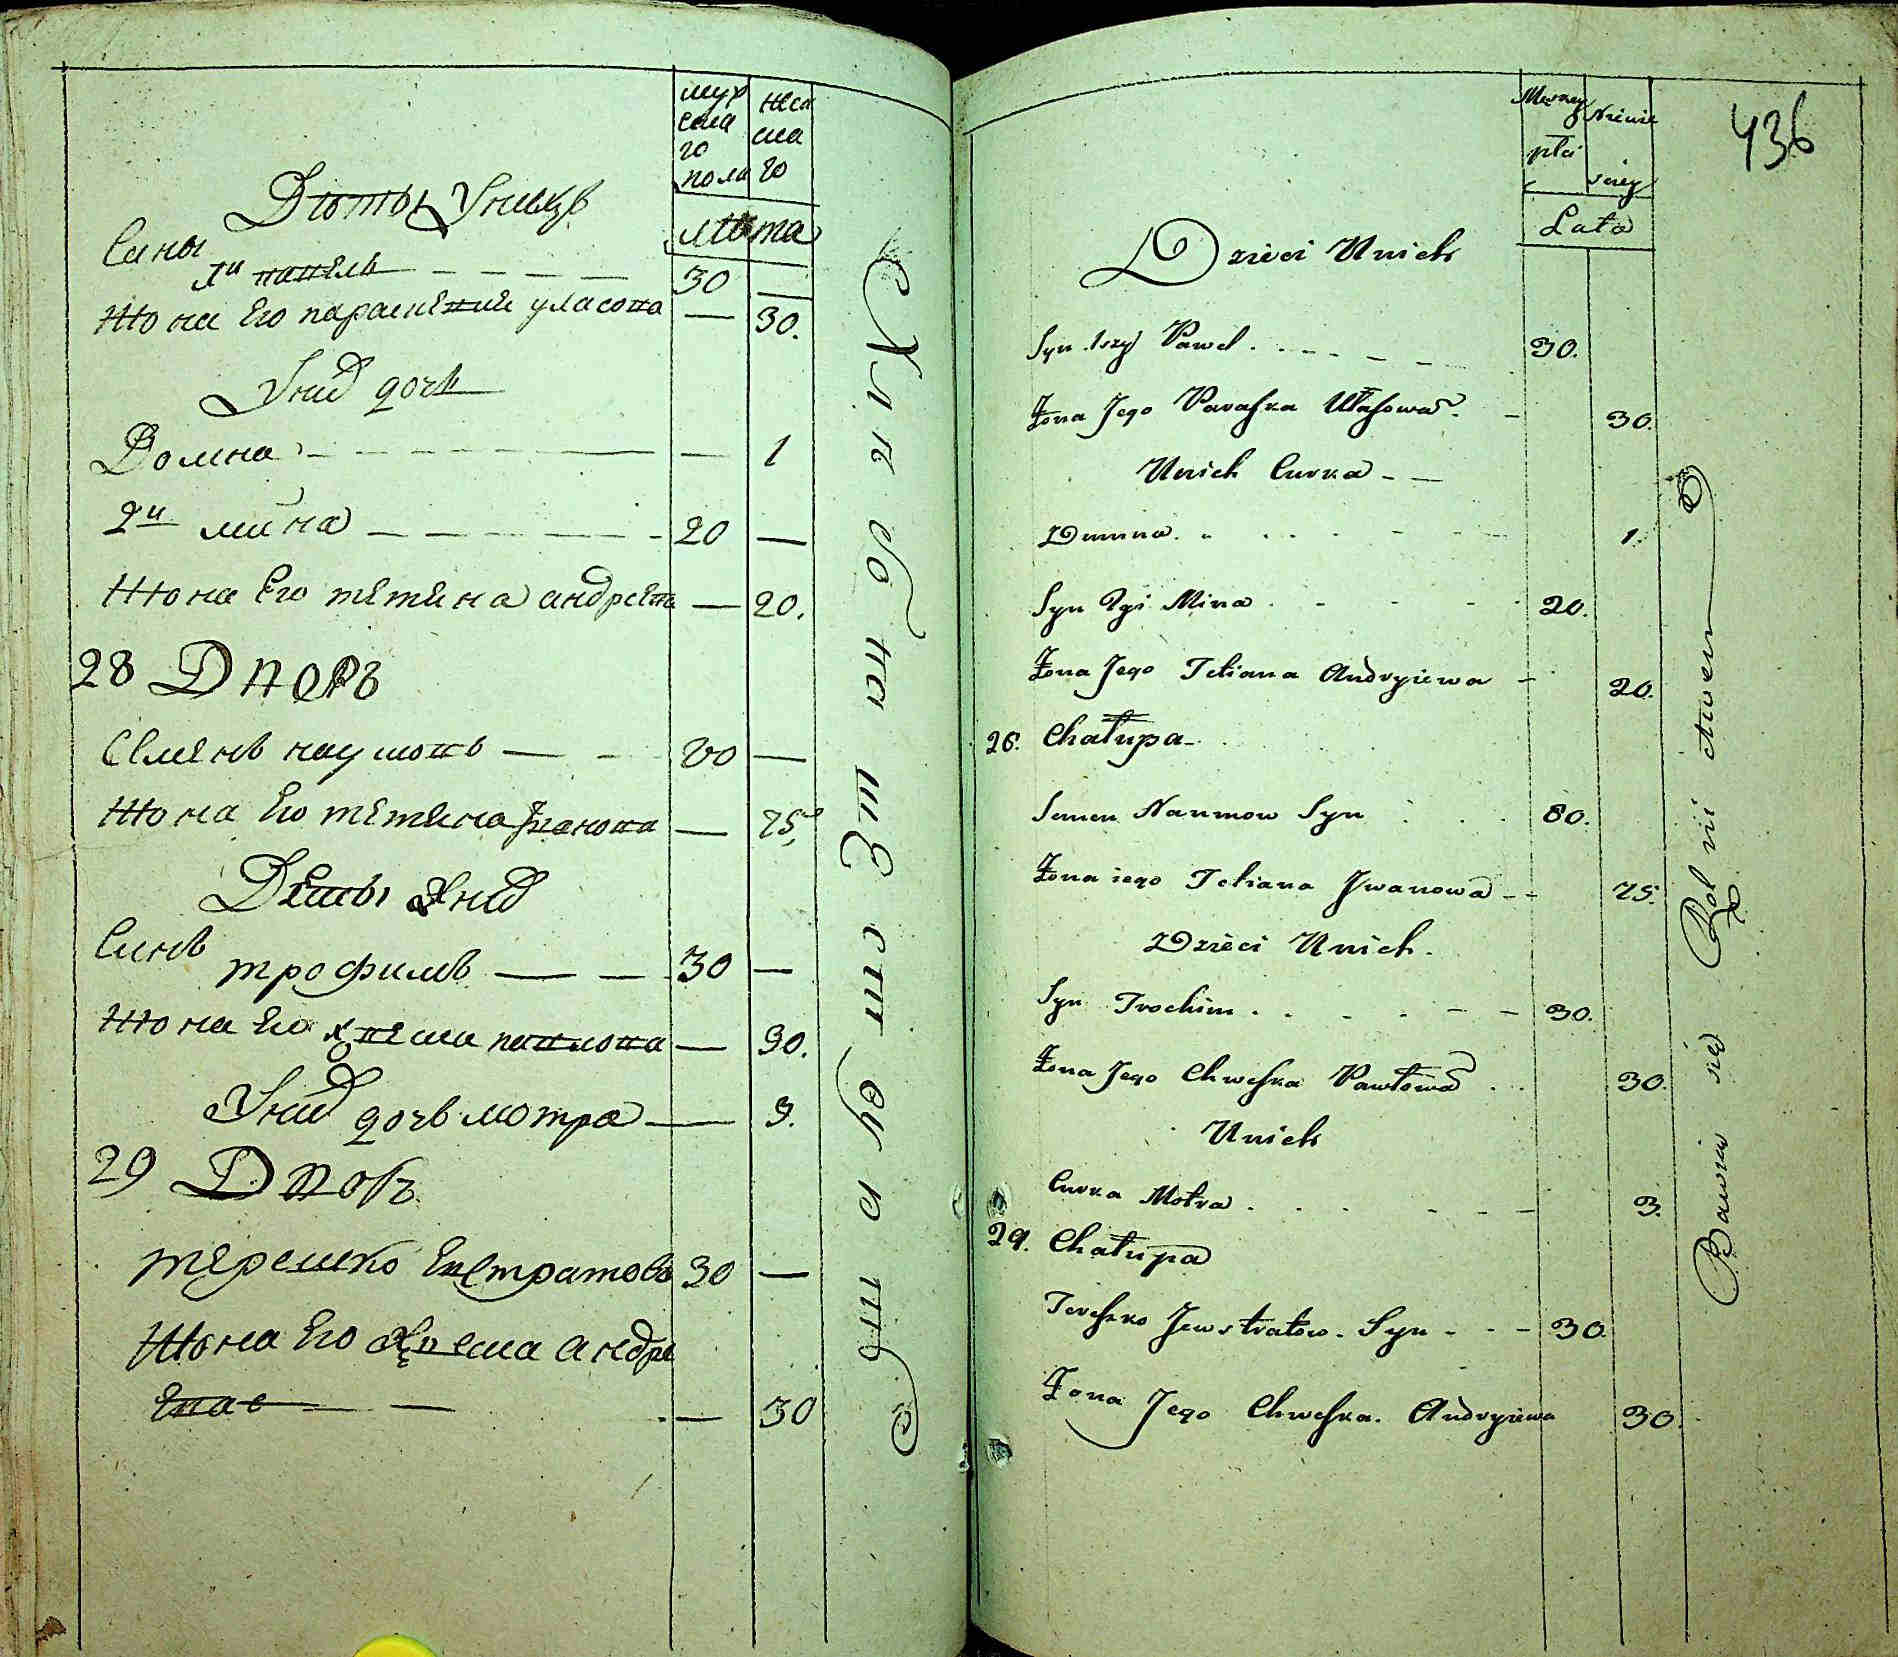 мужеска го пола
женска го
лѣта
Дѣты Уныхъ
Сины
1й павелъ 30 —
Жона Его параскевия уласова — 30.
Уних дочь
Домна — 1
2й мина 20 —
Жона Его тетяна андреева — 20.
28 Дворъ
Семенъ наумовъ 80 —
Жона Его тетяна Иванова — 75
Дети Уних
Синъ трофимъ 30 —
Жона Его хвеся павлова — 30.
Уних дочь мотра — 3.
29 Дворъ
терешко Евстратовъ 30 —
Жона Его Хвеся андре
Ева — 30
Хлебопашествуют
436
Męzkiey płci
Niewieściey
Lata
Dzieci Unich
Syn 1szy Paweł 30.
Żona Jego Paraska Ułasowa 30.
Unich Curka
Dumna 1.
Syn 2gi Mina 20.
Żona Jego Tetiana Andryiewa 20.
28. Chałupa
Semen Naumow Syn 80.
Żona iego Tetiana Jwanowa 75.
Dzieci Unich.
Syn Trochim 30.
Żona Jego Chweska Pawłowa 30.
Unich
Curka Motra 3.
29. Chałupa
Tereszko Jewstratow Syn 30.
Żona Jego Chweska Andryiewa 30.
Bawią się Rolnictwem